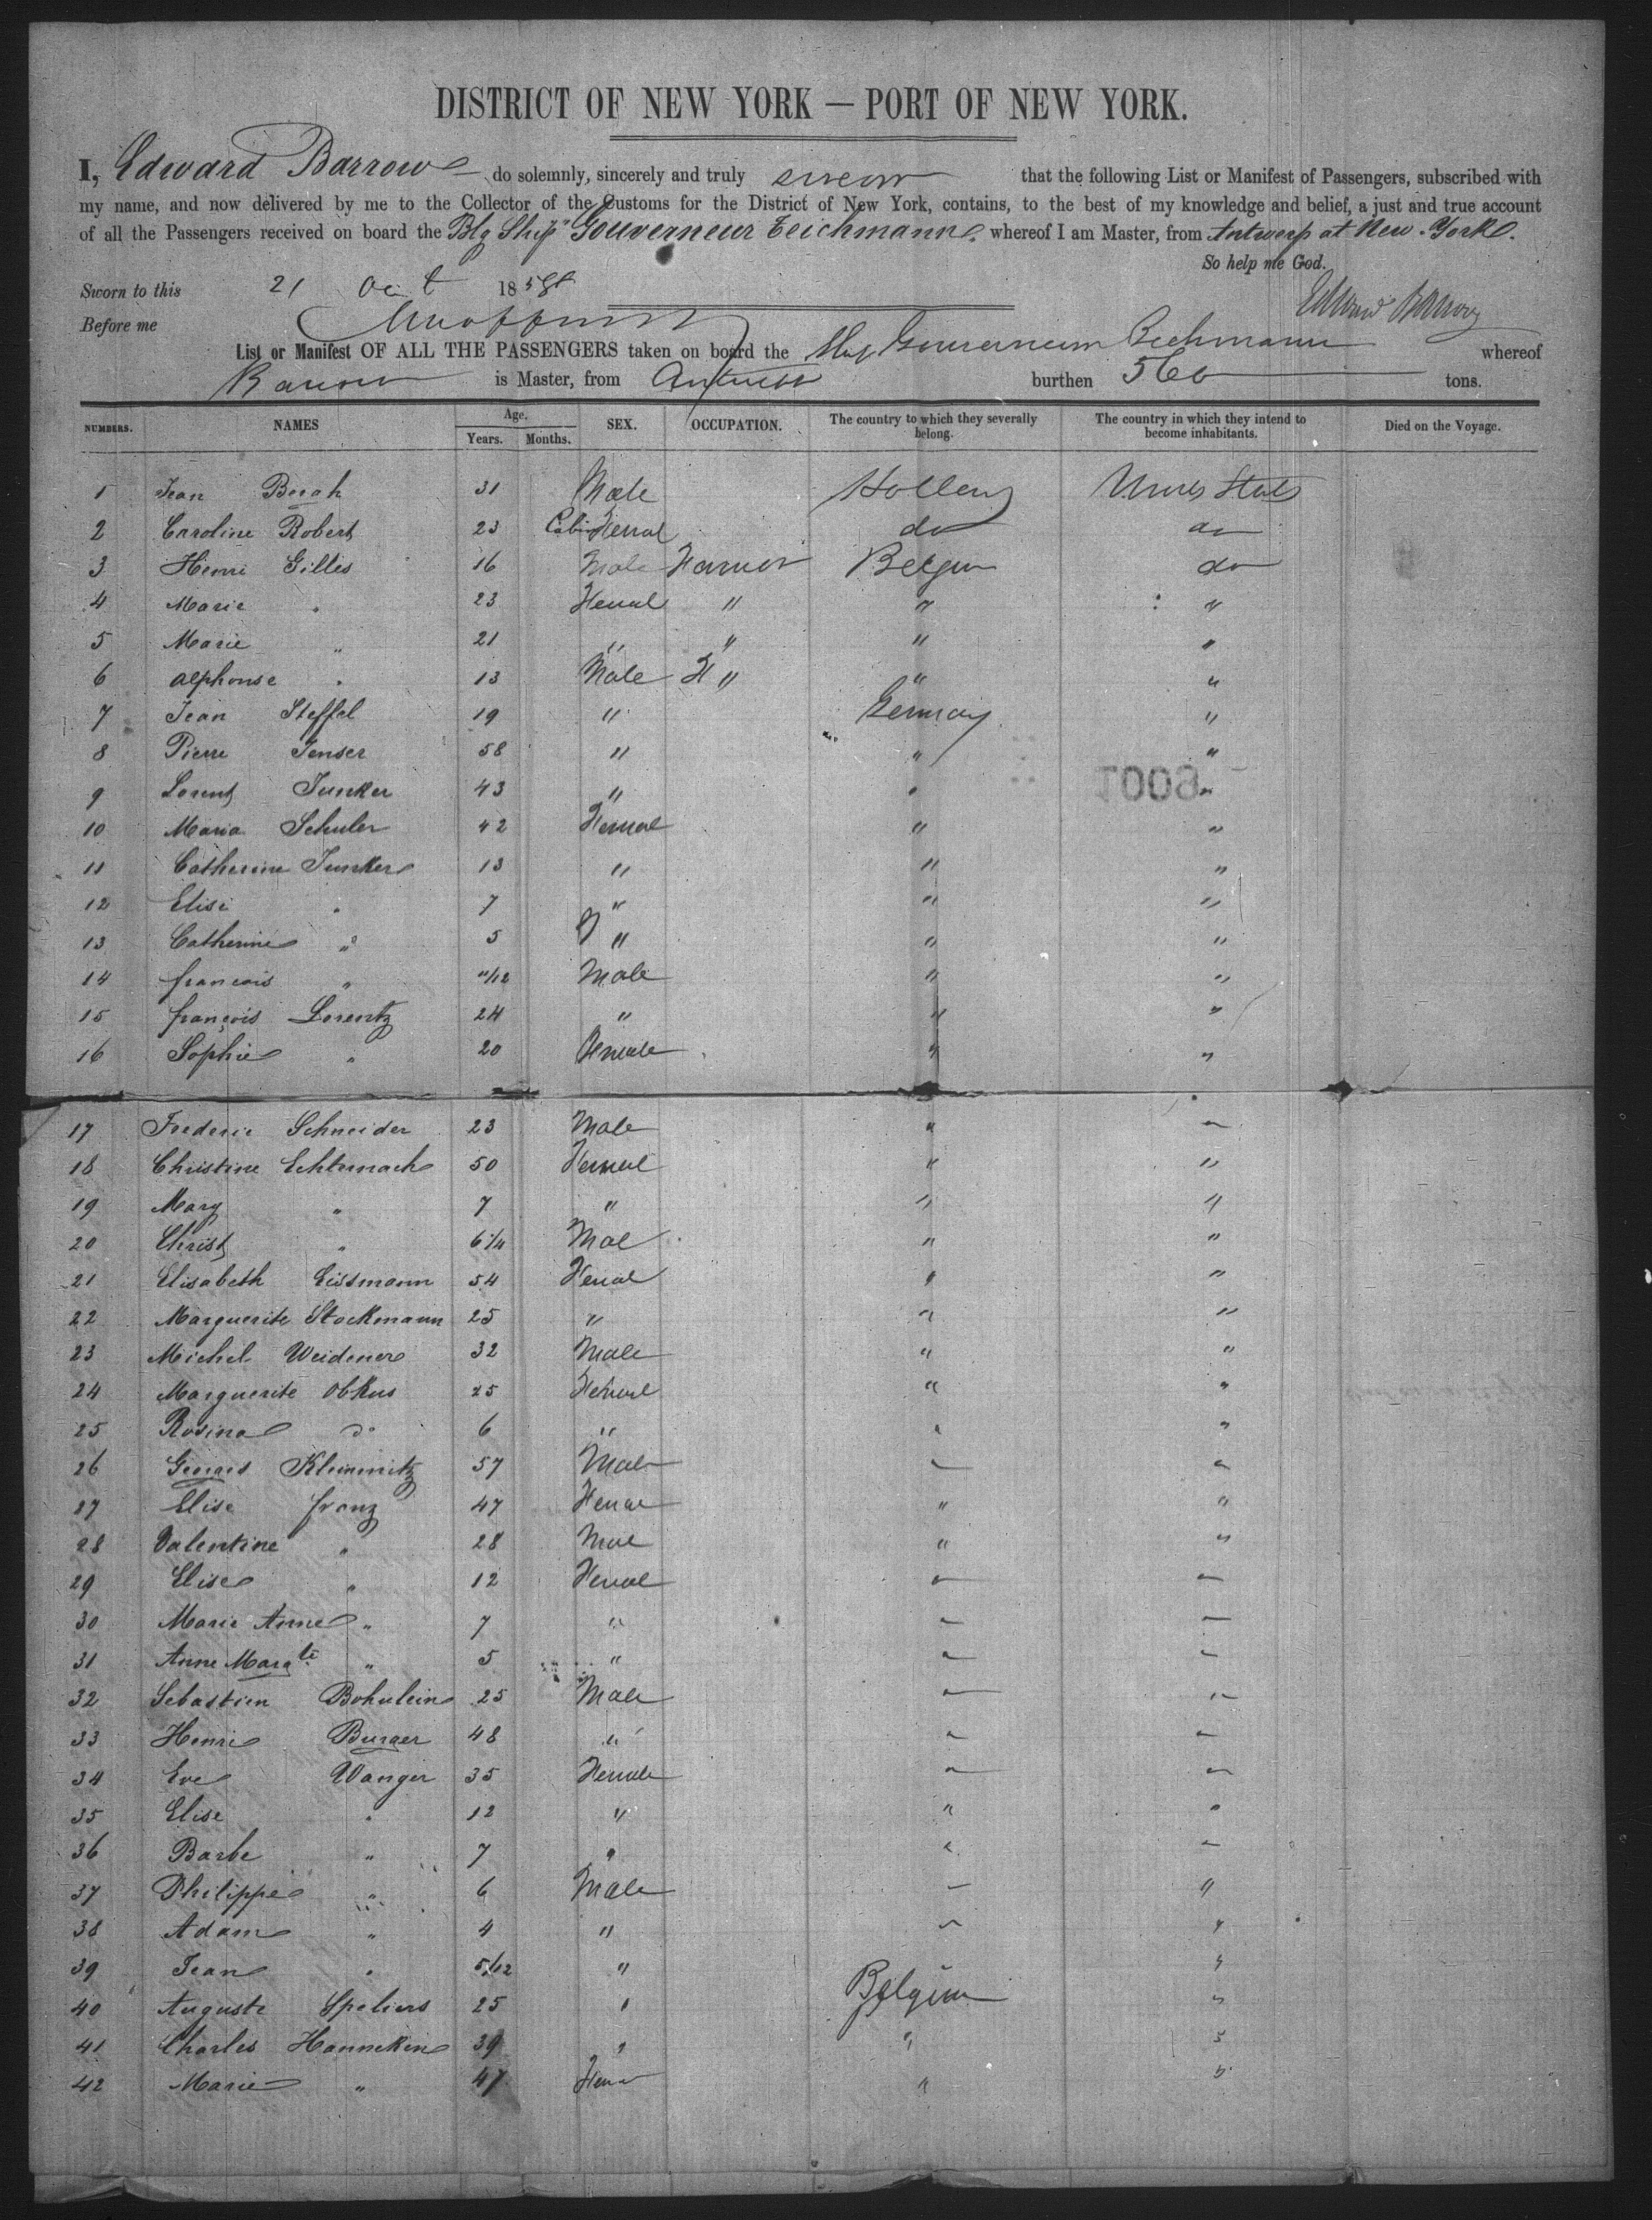 DISTRICT OF NEW YORK — PORT OF NEW YORK.
I, Edward Barrow do solemnly, sincerely and truly swear that the following List or Manifest of Passengers, subscribed with
my name, and now delivered by me to the Collector of the Customs for the District of New York, contains, to the best of my knowledge and belief, a just and true account
of all the Passengers received on board the Blg Ship "Gouverneur Teichmann" whereof I am Master, from Antwerp at New-York.
So help me God.
Sworn to this 21 Oct 1858
Edward Barrow
Before me
List or Manifest OF ALL THE PASSENGERS taken on board the Ship Gouverneur Teichmann whereof
Barrow is Master, from Antwerp burthen 560 tons.
NUMBERS. NAMES Age. Years. Months. SEX. OCCUPATION. The country to which they severally belong. The country in which they intend to become inhabitants. Died on the Voyage.
1 Jean 31 Male United States
2 Caroline Robert 23 Cabin Femal do do
3 Henri Gilles 16 Male Farmer Belgium do
4 Marie " 23 Femal " " "
5 Marie " 21 " " " "
6 Alphonse " 13 Male " " "
7 Jean Steffel 19 " Germany "
8 Pierre Jenser 58 " " "
9 Lorentz Junker 43 " " "
1008
10 Maria Schuler 42 Femal " "
11 Catherine Junker 13 " " "
12 Elise " 7 " " "
13 Catherine " 5 " " "
14 françois " 11/12 Male " "
15 françois Lorentz 24 " " "
16 Sophie " 20 Female " "
17 Frederic Schneider 23 Male " "
18 Christine Echternach 50 Femal " "
19 Mary " 7 " " "
20 Christ " 6 1/4 Male " "
21 Elisabeth Eissmann 54 Femal " "
22 Marguerite Stockmann 25 " " "
23 Michel Weidener 32 Male " "
24 Marguerite Obkus 25 Femal " "
25 Rosina do 6 " " "
26 Georges Klemmitz 57 Male " "
27 Elise franz 47 Femal " "
28 Valentine " 28 Male " "
29 Elise " 12 Femal " "
30 Marie Anne " 7 " " "
31 Anne Margte " 5 " " "
32 Sebastien Bohnlein 25 Male " "
33 Henri Burger 48 " " "
34 Eve Wanger 35 Female " "
35 Elise " 12 " " "
36 Barbe " 7 " " "
37 Philippe " 6 Male " "
38 Adam " 4 " " "
39 Jean " 5/12 " "
40 Auguste Speliers 25 " Belgium "
41 Charles Hannekin 39 " " "
42 Marie " 47 Femal " "